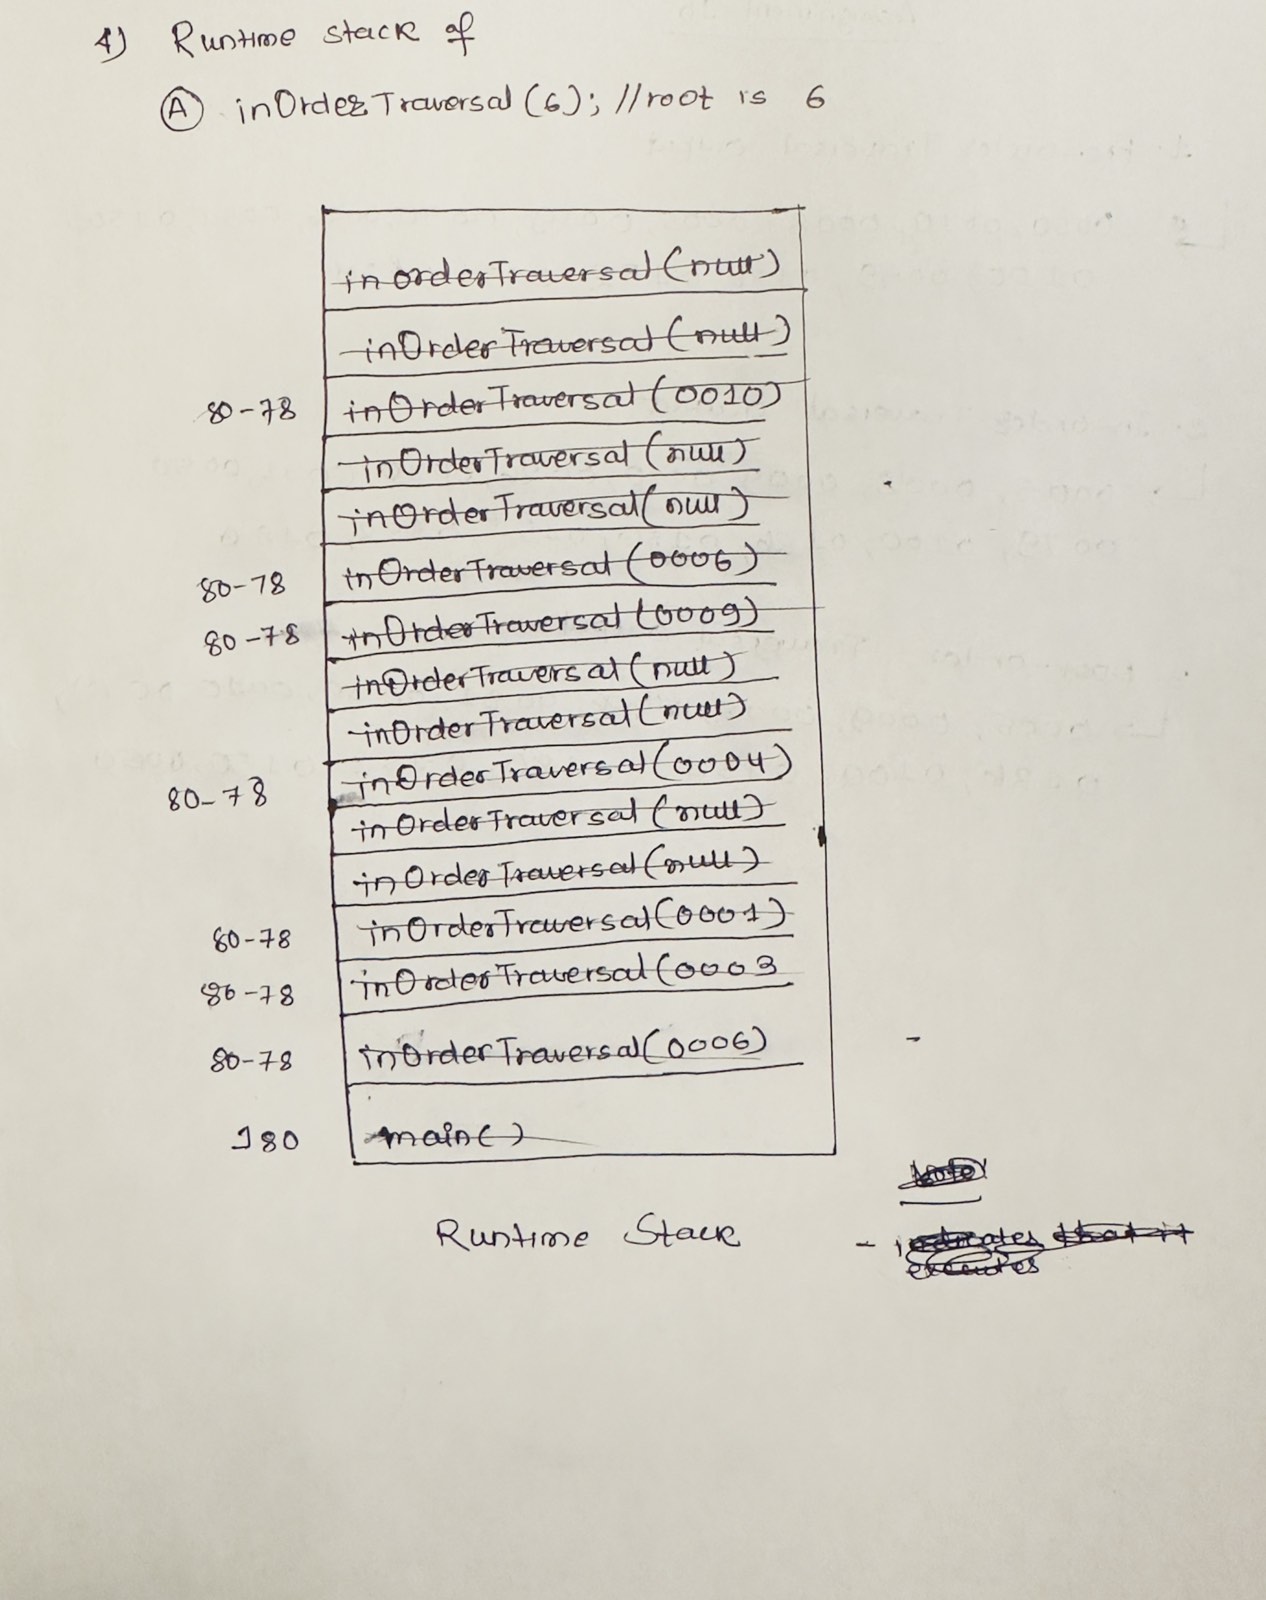 4) Runtime stack of
A inOrder Traversal (6); //root is 6
in orderTraversal (null)
inOrder Traversal (null)
80-78 inOrder Traversal (0010)
inOrder Traversal (null)
inOrder Traversal (null)
80-78 inOrder Traversal (0006)
80-78 inOrder Traversal (0009)
inOrder Traversal (null)
inOrder Traversal (null)
80-78 inOrder Traversal (0004)
inOrder Traversal (null)
inOrder Traversal (null)
80-78 inOrder Traversal (0001)
80-78 inOrder Traversal (0003
80-78 inOrder Traversal (0006)
180 main()
Note
Runtime Stack - indicates that it
executes